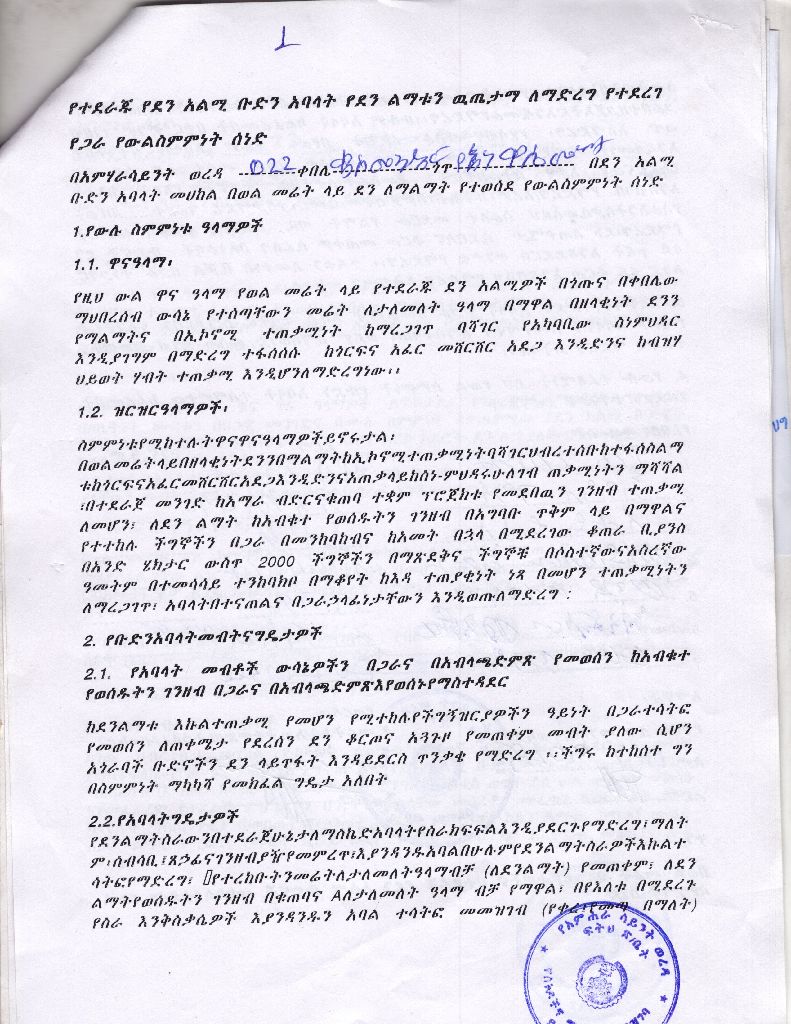 1
የተደራጁ የደን አልሚ ቡድን አባላት የደን ልማቱን ዉጤታማ ለማድረግ የተደረገ
የጋራ የውልስምምነት ሰነድ
በአምሃራሳይንት ወረዳ 022 ቀበሌ ጎጥ በደን አልሚ
ቡድን አባላት መሀከል በወል መሬት ላይ ደን ለማልማት የተወሰደ የውልስምምነት ሰነድ
1.የውሉ ስምምነቱ ዓላማዎች
1.1. ዋናዓላማ፡
የዚህ ውል ዋና ዓላማ የወል መሬት ላይ የተደራጁ ደን አልሚዎች በጎጡና በቀበሌው
ማህበረሰብ ውሳኔ የተሰጣቸውን መሬት ለታለመለት ዓላማ በማዋል በዘላቂነት ደንን
የማልማትና በኢኮኖሚ ተጠቃሚነት ከማረጋገጥ ባሻገር የአካባቢው ስነምህዳር
እንዲያገግም በማድረግ ተፋሰሰሉ ከጎርፍና አፈር መሸርሸር አደጋ እንዲድንና ከብዝሃ
ህይወት ሃብት ተጠቃሚ እንዲሆንለማድረግነው፡፡
1.2. ዝርዝርዓላማዎች፡
ስምምነቱየሚከተሉትዋናዋናዓላማዎችይኖሩታል፡
በወልመሬትላይበዘላቂነትደንንበማልማትከኢኮኖሚተጠቃሚነትባሻገርህብረተሰቡከተፋሰስልማ
ቱከጎርፍናአፈርመሸርሸርአደጋእንዲድንናአጠቃላይከስነ-ምህዳሩሁለገብ ጠቃሚነትን ማሻሻል
፣በተደራጀ መንገድ ከአማራ ብድርናቁጠባ ተቋም ፕሮጀክቱ የመደበዉን ገንዘብ ተጠቃሚ
ለመሆን፣ ለደን ልማት ከአብቁተ የወሰዱትን ገንዘብ በአግባቡ ጥቅም ላይ በማዋልና
የተተከሉ ችግኞችን በጋራ በመንከባከብና ከአመት በኋላ በሚደረገው ቆጠራ ቢያንስ
በአንድ ሄክታር ውስጥ 2000 ችግኞችን በማጽደቅና ችግኞቹ በሶስተኛውናአስረኛው
ዓመትም በተመሳሳይ ተንከባክቦ በማቆየት ከእዳ ተጠያቂነት ነጻ በመሆን ተጠቃሚነትን
ለማረጋገጥ፣ አባላትበተናጠልና በጋራኃላፊነታቸውን እንዲወጡለማድረግ :
2. የቡድንአባላትመብትናግዴታዎች
2.1. የአባላት መብቶች ውሳኔዎችን በጋራና በአብላጫድምጽ የመወሰን ከአብቁተ
የወሰዱትን ገንዘብ በጋራና በአብላጫድምጽእየወሰኑየማስተዳደር
ከደንልማቱ እኩልተጠቃሚ የመሆን የሚተከሉየችግኝዝርያዎችን ዓይነት በጋራተሳትፎ
የመወሰን ለጠቀሜታ የደረሰን ደን ቆርጦና አጓጉዞ የመጠቀም መብት ያለው ሲሆን
አጎራባች ቡድኖችን ደን ላይጥፋት እንዳይደርስ ጥንቃቄ የማድረግ ፡፡ችግሩ ከተከሰተ ግን
በስምምነት ማካካሻ የመክፈል ግዴታ አለበት
2.2.የአባላትግዴታዎች
የደንልማትስራውንበተደራጀሁኔታለማስኬድአባላትየስራክፍፍልእንዲያደርጉየማድረግ፣ማለት
ም፡ሰብሳቢ፣ጸኃፊናገንዘብያዥየመምረጥ፣እያንዳንዱአባልበሁሉምየደንልማትስራዎችእኩልተ
ሳትፎየማድረግ፣ የተረከቡትንመሬትለታለመለትዓላማብቻ (ለደንልማት) የመጠቀም፣ ለደን
ልማትየወሰዱትን ገንዘብ በቁጠባና Aለታለመለት ዓላማ ብቻ የማዋል፣ በየእለቱ በሚደረጉ
የስራ እንቅስቃሴዎች እያንዳንዱን አባል ተሳትፎ መመዝገብ (የቀረ፣የመጣ በማለት)
የአምሐራ ሳይንት ወረዳ
ፍትህ ጽ/ቤት